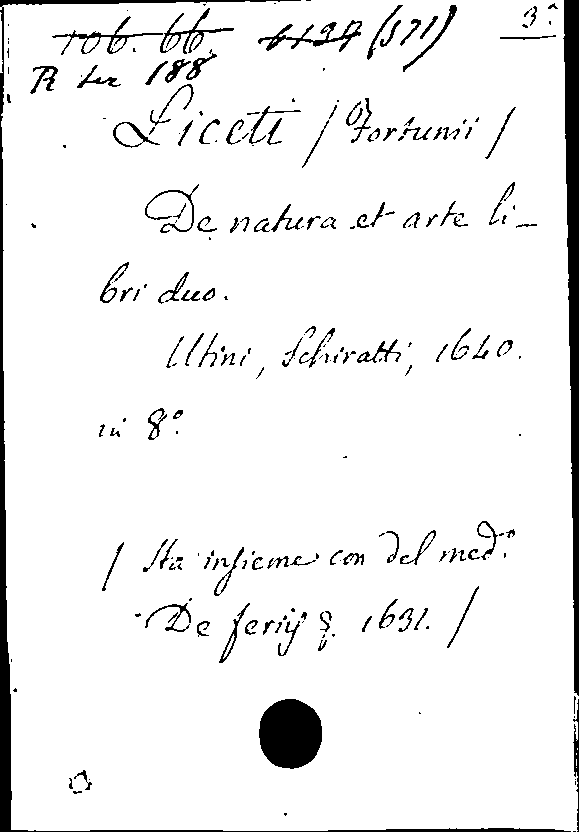 3º
106. 66. 6139 (571)
R ser 188
Liceti / Fortunii /
De natura et arte li-
bri duo.
Utini, Schiratti, 1640.
in 8º.
/ Sta insieme con del med.º
De feriis &. 1631. /